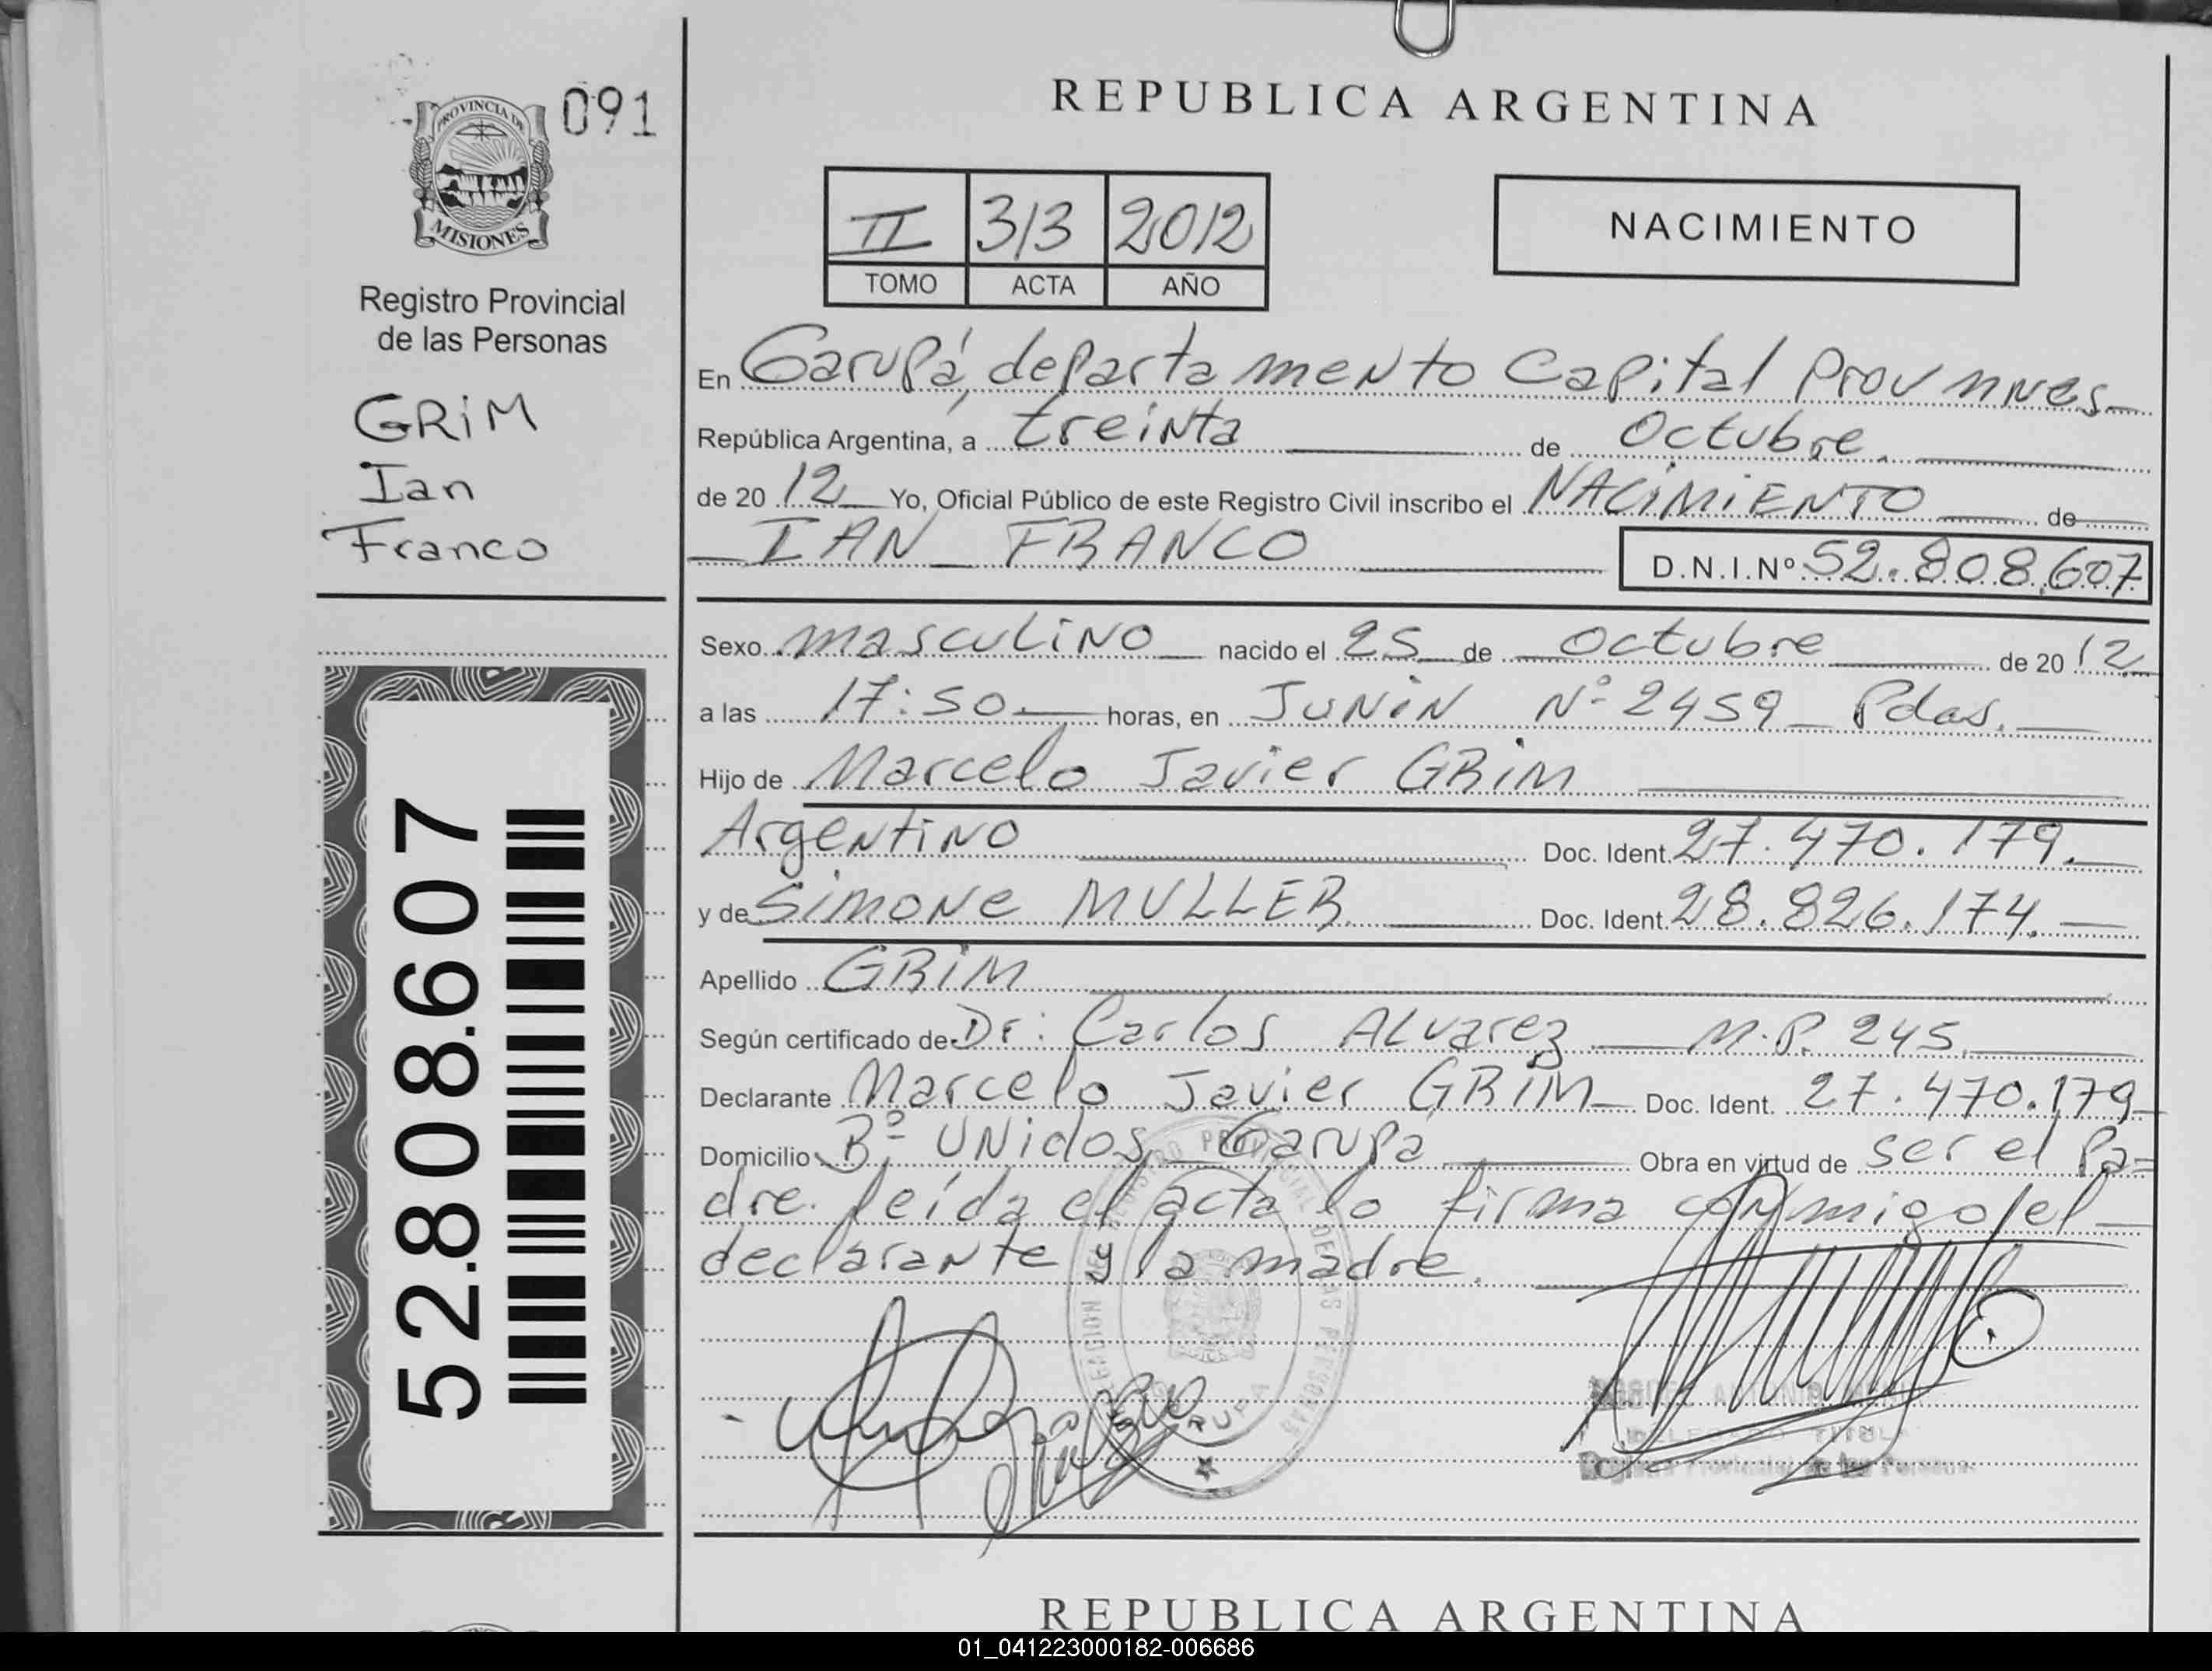 091
PROVINCIA DE
MISIONES
Registro Provincial
de las Personas
GRiM
Ian
Franco
52.808.607
REPUBLICA ARGENTINA
II 313 2012
TOMO ACTA AÑO
NACIMIENTO
En Garupá, departamento Capital Prov mnes
República Argentina, a treinta de Octubre.
de 20 12 Yo, Oficial Público de este Registro Civil inscribo el NACiMiENTO de
IAN FRANCO D.N.I.Nº 52.808.607
Sexo masculino nacido el 25 de Octubre de 20 12
a las 17:50 horas, en JUNiN Nº 2459 Pdas.
Hijo de Marcelo Javier GRiM
Argentino Doc. Ident. 27.470.179.
y de Simone MULLER Doc. Ident. 28.826.174.
Apellido GRiM
Según certificado de Dr: Carlos Alvarez M.P. 245.
Declarante Marcelo Javier GRiM Doc. Ident. 27.470.179
Domicilio Bº Unidos Garupa Obra en virtud de ser el Pa=
dre. leída el acta lo firma conmigo/el
declarante y la madre.
REGISTRO PROVINCIAL DE LAS PERSONAS
DELEGACION
GARUPA
DELEGADO TITULAR
Registro Provincial de las Personas
REPUBLICA ARGENTINA
01_041223000182-006686